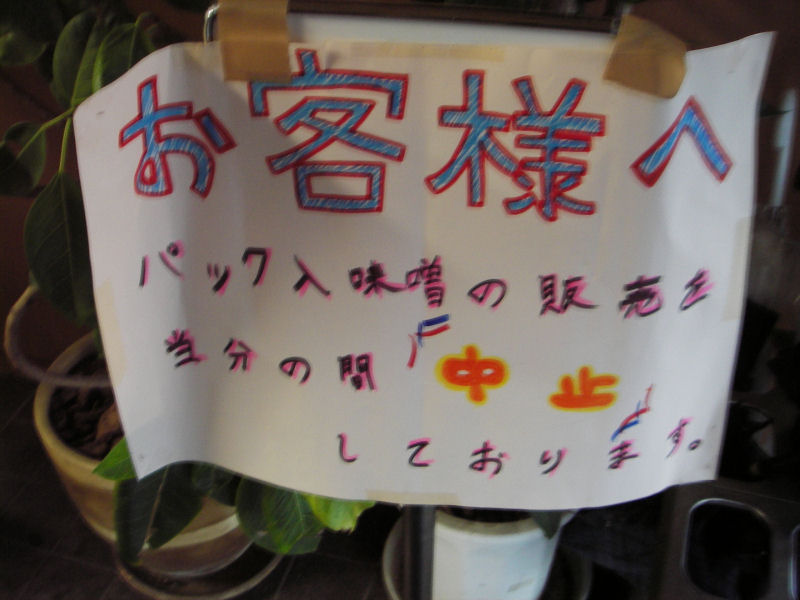 お客様へ
パック入味噌の販売を
当分の間 中止
しております。